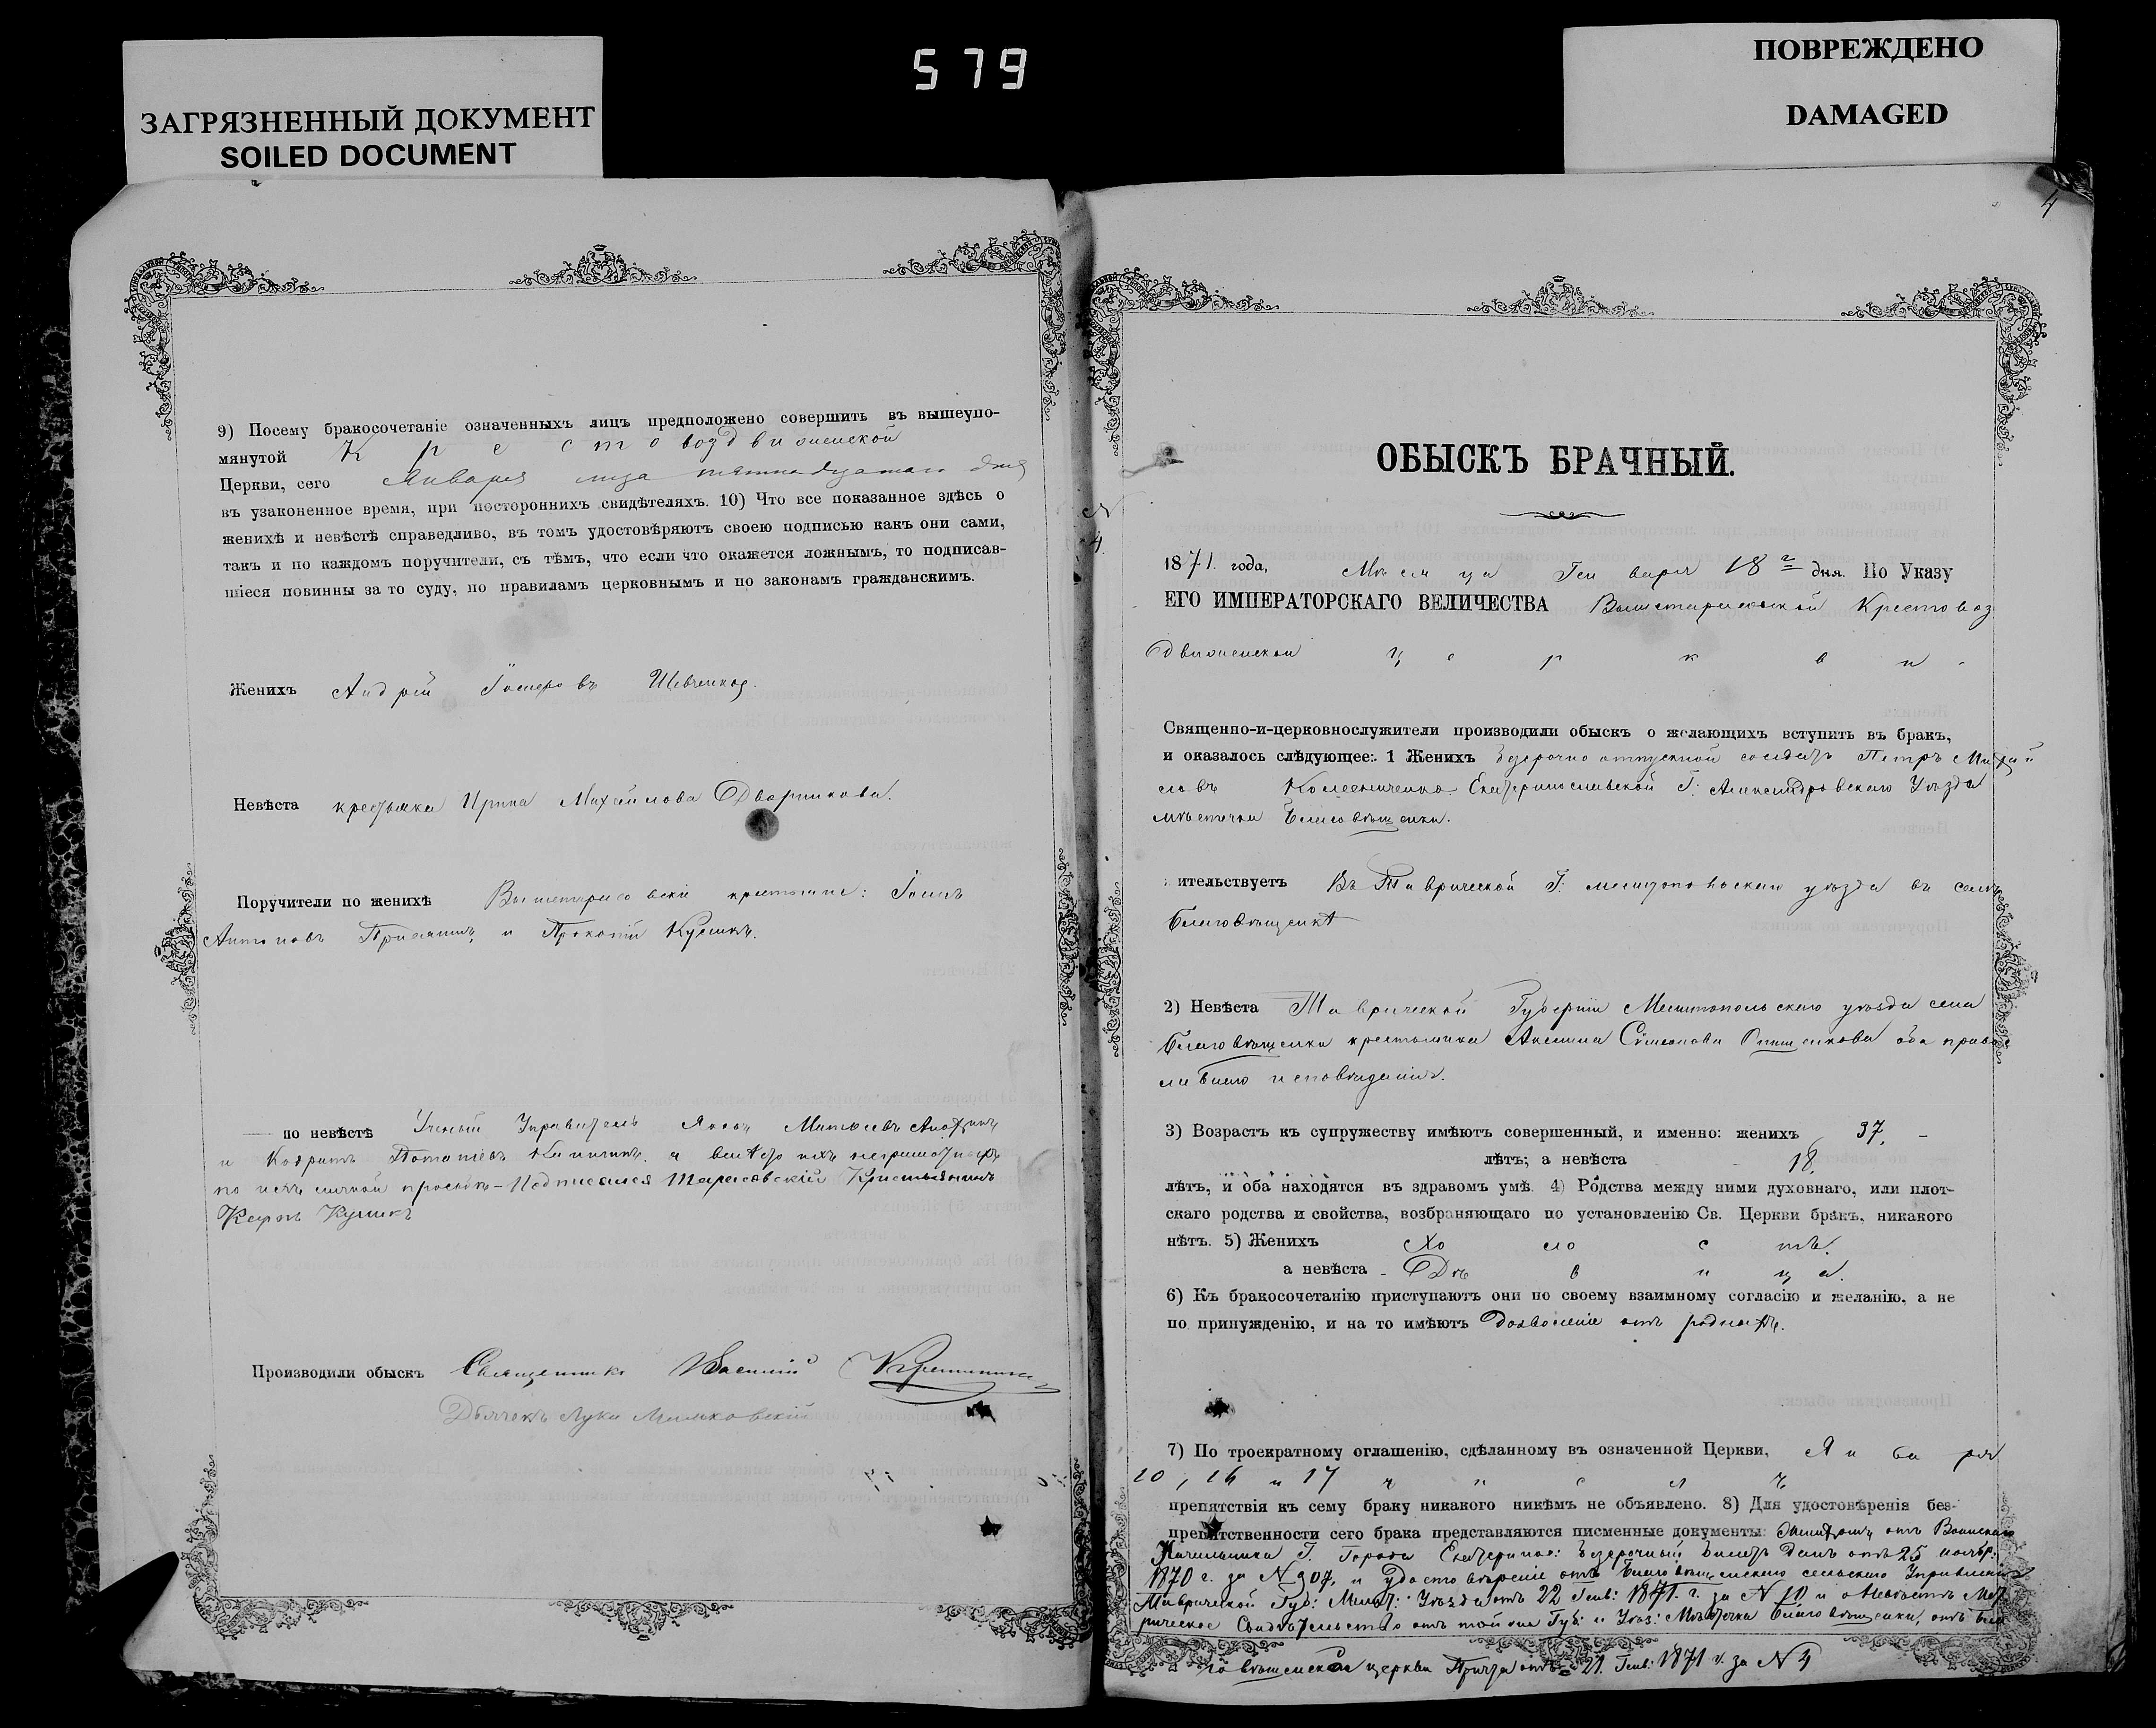 ЗАГРЯЗНЕННЫЙ ДОКУМЕНТ
SOILED DOCUMENT
579
ПОВРЕЖДЕНО
DAMAGED
9) Посему бракосочетаніе означенныхъ лицъ предположено совершить въ вышеупо-
мянутой Крестовоздвиженской
Церкви, сего Января м‑ца пятнадцатаго дня
въ узаконенное время, при постороннихъ свидѣтеляхъ. 10) Что все показанное здѣсь о
женихѣ и невѣстѣ справедливо, въ томъ удостовѣряютъ своею подписью какъ они сами,
такъ и по каждомъ поручители, съ тѣмъ, что если что окажется ложнымъ, то подписав-
шіеся повинны за то суду, по правиламъ церковнымъ и по законамъ гражданскимъ.
Женихъ Андрей Шевченко.
Невѣста крестьянка Ирина Михайлова Дварникова.
Поручители по женихѣ крестьяне:
Антоновъ и Прокопій Куликъ.
по невѣстѣ Яковъ
и
по ихъ личной просьбѣ - Подписался
Карпъ Куликъ
Производили обыскъ Священникъ Василій
Дьячокъ Лука
4
№
4.
ОБЫСКЪ БРАЧНЫЙ.
1871. года, Мѣсяца Генваря 18 г дня. По Указу
ЕГО ИМПЕРАТОРСКАГО ВЕЛИЧЕСТВА Крестовоз
движенской Церкви.
Священно-и-церковнослужители производили обыскъ о желающихъ вступить въ бракъ,
и оказалось слѣдующее: 1 Женихъ безсрочно отпускной солдатъ Петръ Михай
ловъ Колесниченко Екатеринославской Г: Александровскаго Уѣзда
мѣстечка Благовѣщенки.
ительствуетъ Въ Таврической Г: мелитопольскаго уѣзда въ селѣ
благовѣщенкѣ
2) Невѣста Таврической Губерніи Мелитопольскаго уѣзда села
благовѣщенки крестьянка Акилина оба право
славнаго исповѣданія.
3) Возрастъ къ супружеству имѣютъ совершенный, и именно: женихъ 37,
лѣтъ; а невѣста 18.
лѣтъ, и оба находятся въ здравомъ умѣ. 4) Родства между ними духовнаго, или плот-
скаго родства и свойства, возбраняющаго по установленію Св. Церкви бракъ, никакого
нѣтъ. 5) Женихъ Холостъ.
а невѣста Дѣвица.
6) Къ бракосочетанію приступаютъ они по своему взаимному согласію и желанію, а не
по принужденію, и на то имѣютъ дозволеніе отъ родныхъ.
7) По троекратному оглашенію, сдѣланному въ означенной Церкви, Января
10, 16 и 17 чиселъ
препятствія къ сему браку никакого никѣмъ не объявлено. 8) Для удостовѣренія без-
препятственности сего брака представляются писменные документы: отъ Воинскаго
Начальника Г. Города Екатеринос: безсрочный билетъ данъ отъ 25 ноябр:
1870 г. за № 907, и удостовѣреніе отъ Благовѣщенскаго сельскаго Управленія
Таврической Губ: Мелит: Уѣзда отъ 22 Генв: 1871 г. за № 10 и о Невѣстѣ Мет
рическое Свидѣтельство отъ той же Губ: и Уѣз: Мѣстечка благовѣщенки, отъ Бла
говѣщенской церкви Причта отъ 21. Генв: 1871 г. за №